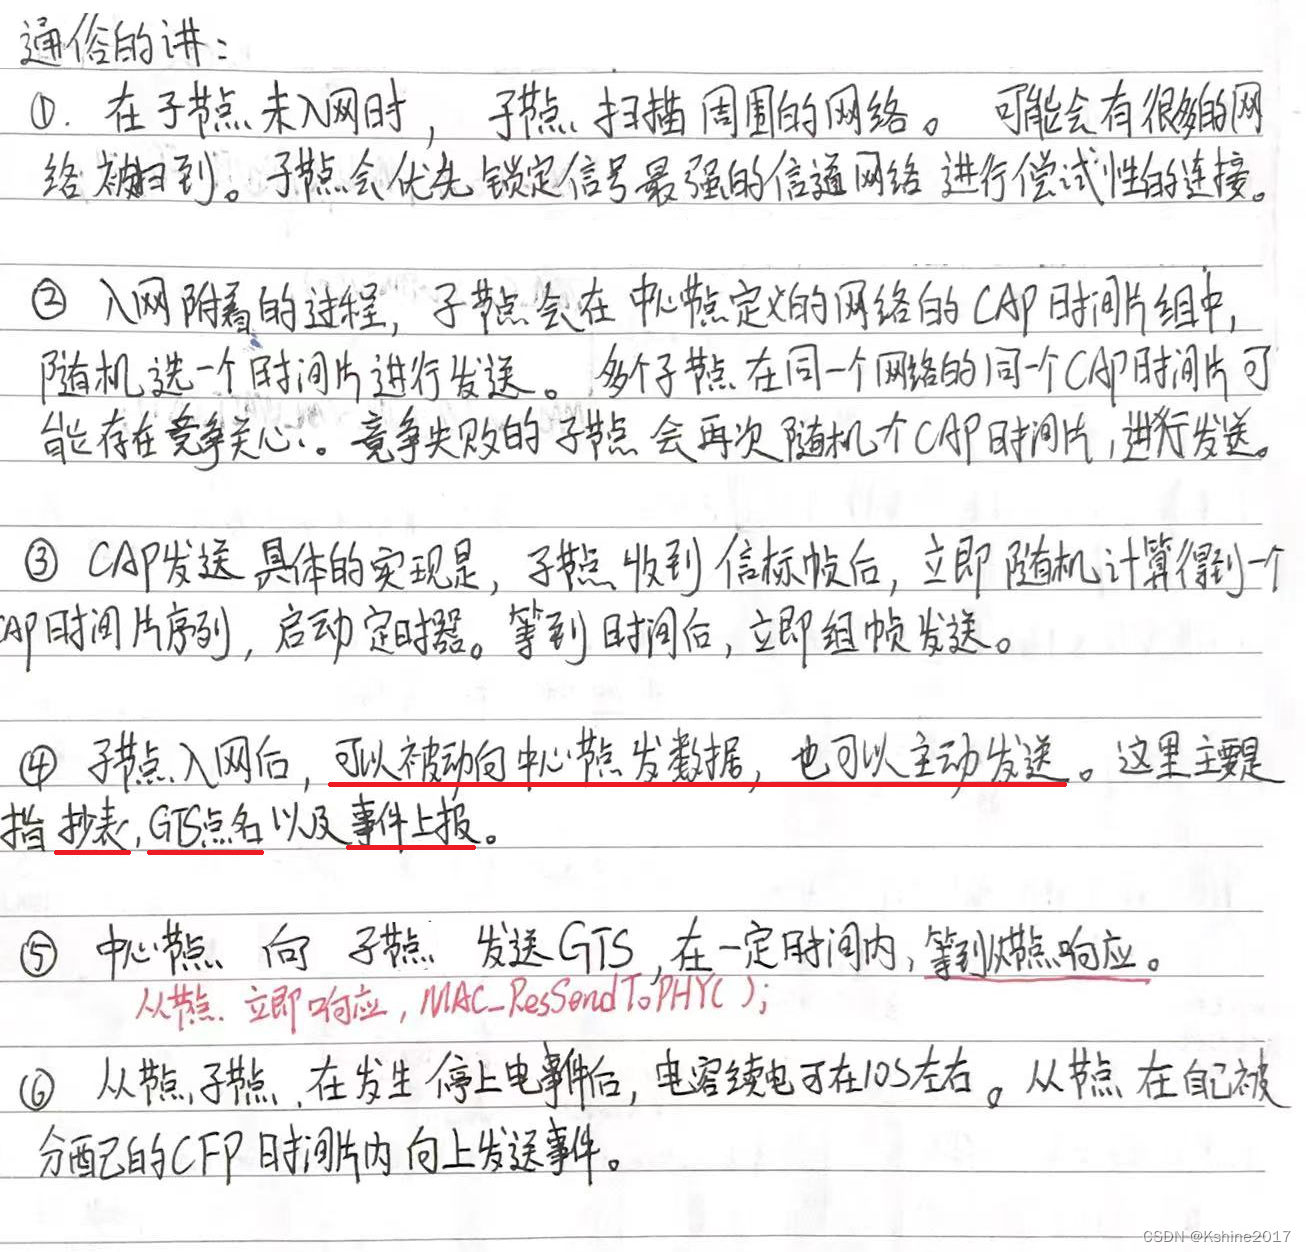 通俗的讲：
①. 在子节点未入网时，子节点扫描周围的网络。可能会有很多的网
络被扫到。子节点会优先锁定信号最强的信道网络进行偿试性的连接。
② 入网附着的过程，子节点会在中心节点定义的网络的CAP时间片组中，
随机选一个时间片进行发送。多个子节点在同一个网络的同一个CAP时间片可
能存在竞争关心。竞争失败的子节点会再次随机个CAP时间片，进行发送。
③ CAP发送具体的实现是，子节点收到信标帧后，立即随机计算得到一个
CAP时间片序列，启动定时器。等到时间后，立即组帧发送。
④ 子节点入网后，可以被动向中心节点发数据，也可以主动发送。这里主要是
指抄表，GTS点名以及事件上报。
⑤ 中心节点 向 子节点 发送GTS，在一定时间内，等到从节点响应。
从节点 立即响应，MAC_ResSendToPHY();
⑥ 从节点，子节点，在发生停上电事件后，电容续电可在10S左右。从节点在自己被
分配的CFP时间片内向上发送事件。
CSDN @Kshine2017